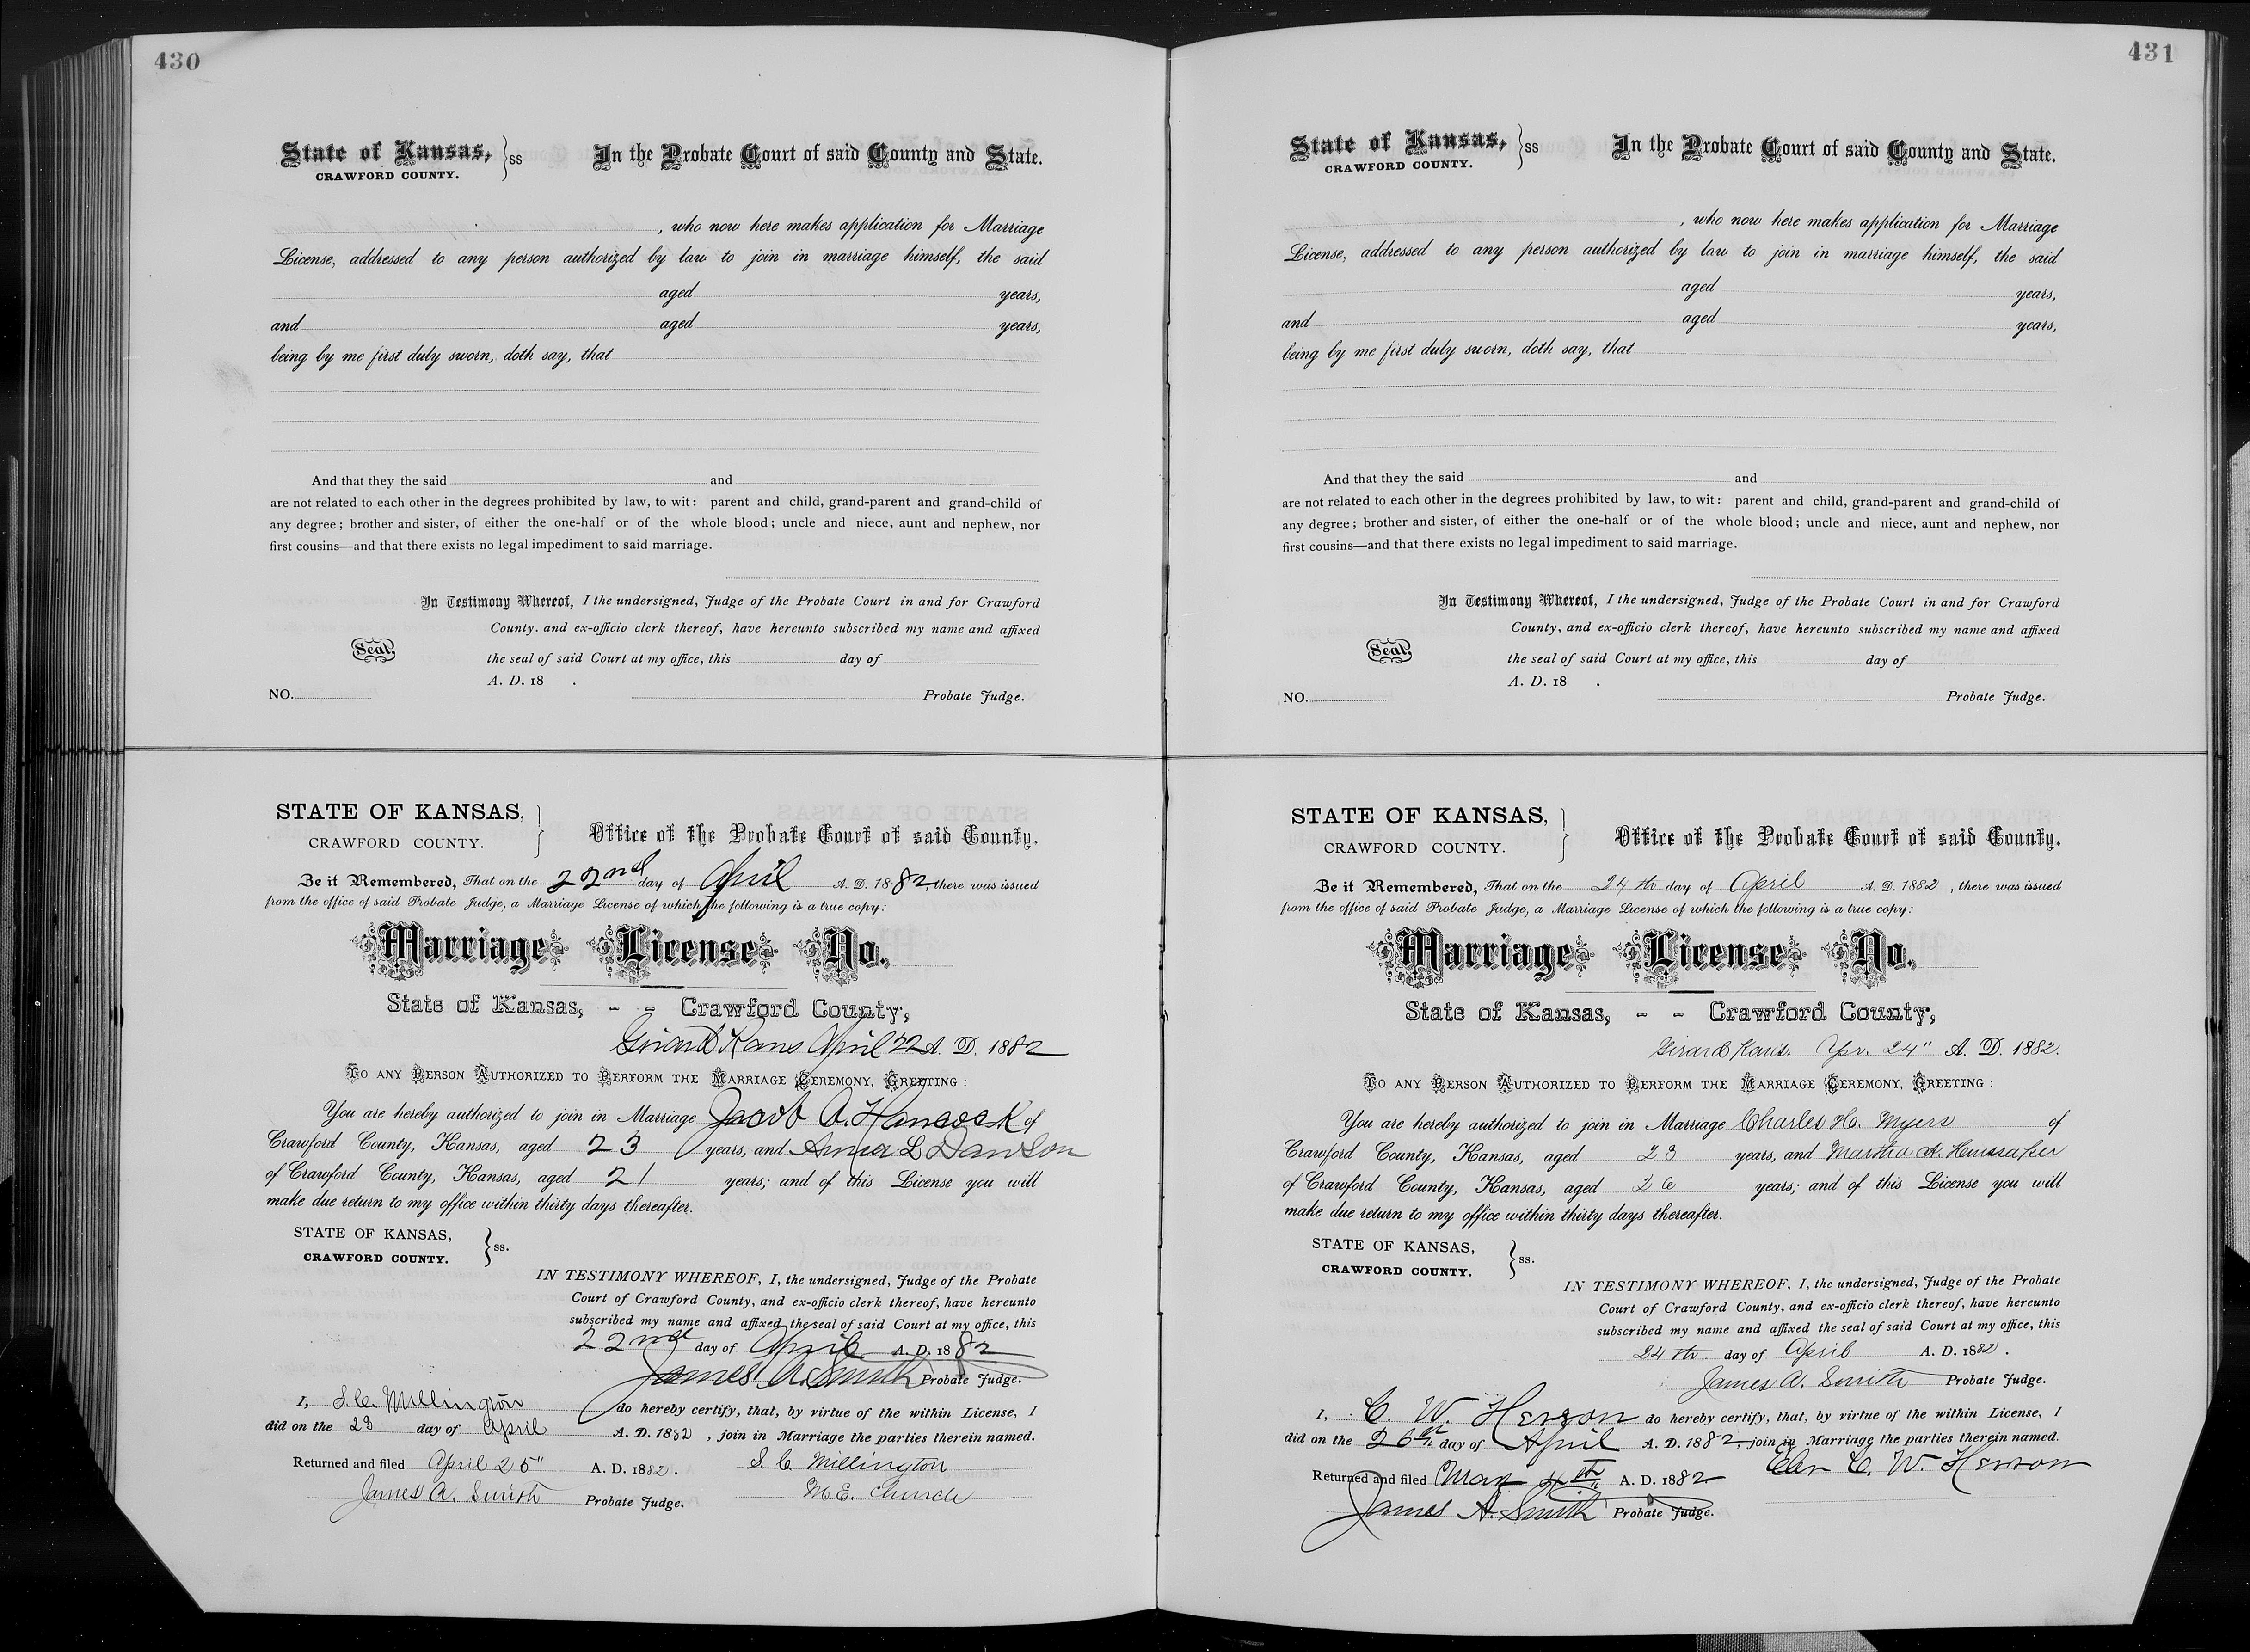 430
State of Kansas, } ss In the Probate Court of said County and State.
CRAWFORD COUNTY.
, who now here makes application for Marriage
License, addressed to any person authorized by law to join in marriage himself, the said
aged years,
and aged years,
being by me first duly sworn, doth say, that
And that they the said and
are not related to each other in the degrees prohibited by law, to wit: parent and child, grand-parent and grand-child of
any degree; brother and sister, of either the one-half or of the whole blood; uncle and niece, aunt and nephew, nor
first cousins—and that there exists no legal impediment to said marriage.
In Testimony Whereof, I the undersigned, Judge of the Probate Court in and for Crawford
County. and ex-officio clerk thereof, have hereunto subscribed my name and affixed
Seal. the seal of said Court at my office, this day of
A. D. 18 .
NO. Probate Judge.
STATE OF KANSAS, }
CRAWFORD COUNTY. Office of the Probate Court of said County.
Be it Remembered, That on the 22nd day of April A. D. 1882, there was issued
from the office of said Probate Judge, a Marriage License of which the following is a true copy:
Marriage License No.
State of Kansas, - - Crawford County,
Girard Kans April 22 A. D. 1882
TO ANY PERSON AUTHORIZED TO PERFORM THE MARRIAGE CEREMONY, GREETING:
You are hereby authorized to join in Marriage Jacob A. Hancock of
Crawford County, Kansas, aged 23 years, and Anna L Dawson
of Crawford County, Kansas, aged 21 years; and of this License you will
make due return to my office within thirty days thereafter.
STATE OF KANSAS, } ss.
CRAWFORD COUNTY.
IN TESTIMONY WHEREOF, I, the undersigned, Judge of the Probate
Court of Crawford County, and ex-officio clerk thereof, have hereunto
subscribed my name and affixed the seal of said Court at my office, this
22nd day of April A. D. 1882
James A. Smith Probate Judge.
I, S. C. Millington do hereby certify, that, by virtue of the within License, I
did on the 23 day of April A. D. 1882, join in Marriage the parties therein named.
Returned and filed April 25" A. D. 1882. S. C. Millington
James A. Smith Probate Judge. M. E. Church
431
State of Kansas, } ss In the Probate Court of said County and State.
CRAWFORD COUNTY.
, who now here makes application for Marriage
License, addressed to any person authorized by law to join in marriage himself, the said
aged years,
and aged years,
being by me first duly sworn, doth say, that
And that they the said and
are not related to each other in the degrees prohibited by law, to wit: parent and child, grand-parent and grand-child of
any degree; brother and sister, of either the one-half or of the whole blood; uncle and niece, aunt and nephew, nor
first cousins—and that there exists no legal impediment to said marriage.
In Testimony Whereof, I the undersigned, Judge of the Probate Court in and for Crawford
County, and ex-officio clerk thereof, have hereunto subscribed my name and affixed
Seal. the seal of said Court at my office, this day of
A. D. 18 .
NO. Probate Judge.
STATE OF KANSAS, }
CRAWFORD COUNTY. Office of the Probate Court of said County.
Be it Remembered, That on the 24th day of April A. D. 1882, there was issued
from the office of said Probate Judge, a Marriage License of which the following is a true copy:
Marriage License No.
State of Kansas, - - Crawford County,
Girard Kans. Apr. 24" A. D. 1882.
TO ANY PERSON AUTHORIZED TO PERFORM THE MARRIAGE CEREMONY, GREETING:
You are hereby authorized to join in Marriage Charles H. Myers of
Crawford County, Kansas, aged 23 years, and Martha A.
of Crawford County, Kansas, aged 26 years; and of this License you will
make due return to my office within thirty days thereafter.
STATE OF KANSAS, } ss.
CRAWFORD COUNTY.
IN TESTIMONY WHEREOF, I, the undersigned, Judge of the Probate
Court of Crawford County, and ex-officio clerk thereof, have hereunto
subscribed my name and affixed the seal of said Court at my office, this
24th day of April A. D. 1882.
James A. Smith Probate Judge.
I, C. W. Herron do hereby certify, that, by virtue of the within License, I
did on the 26th day of April A. D. 1882, join in Marriage the parties therein named.
Returned and filed May 4th A. D. 1882 C. W. Herron
James A. Smith Probate Judge.